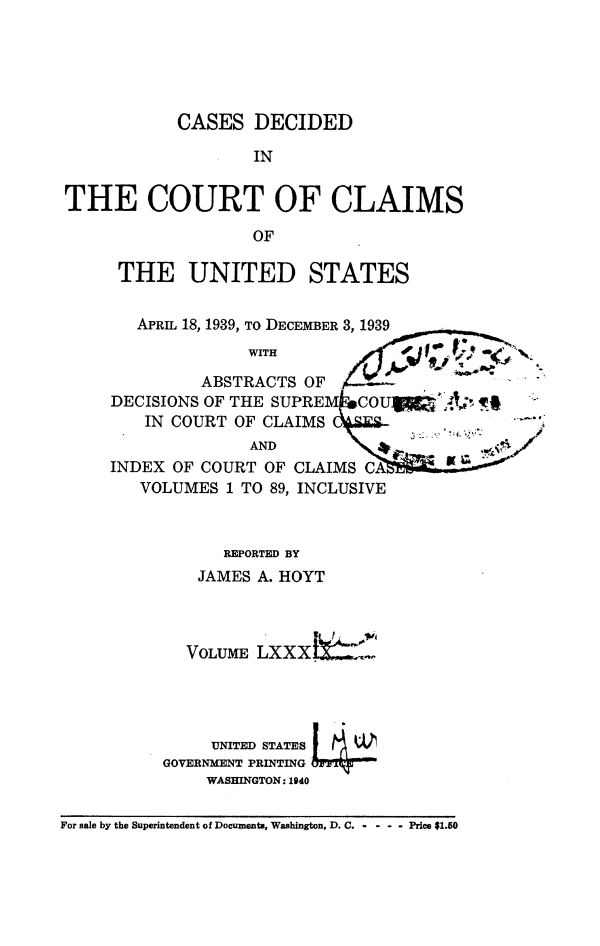 CASES DECIDED
IN
THE COURT OF CLAIMS
OF
THE UNITED STATES
APRIL 18, 1939, TO DECEMBER 3, 1939
WITH
ABSTRACTS OF
DECISIONS OF THE SUPREME COURT
IN COURT OF CLAIMS CASES
AND
INDEX OF COURT OF CLAIMS CASES
VOLUMES 1 TO 89, INCLUSIVE
REPORTED BY
JAMES A. HOYT
VOLUME LXXXIX
UNITED STATES
GOVERNMENT PRINTING OFFICE
WASHINGTON : 1940
For sale by the Superintendent of Documents, Washington, D. C. - - - - Price $1.50